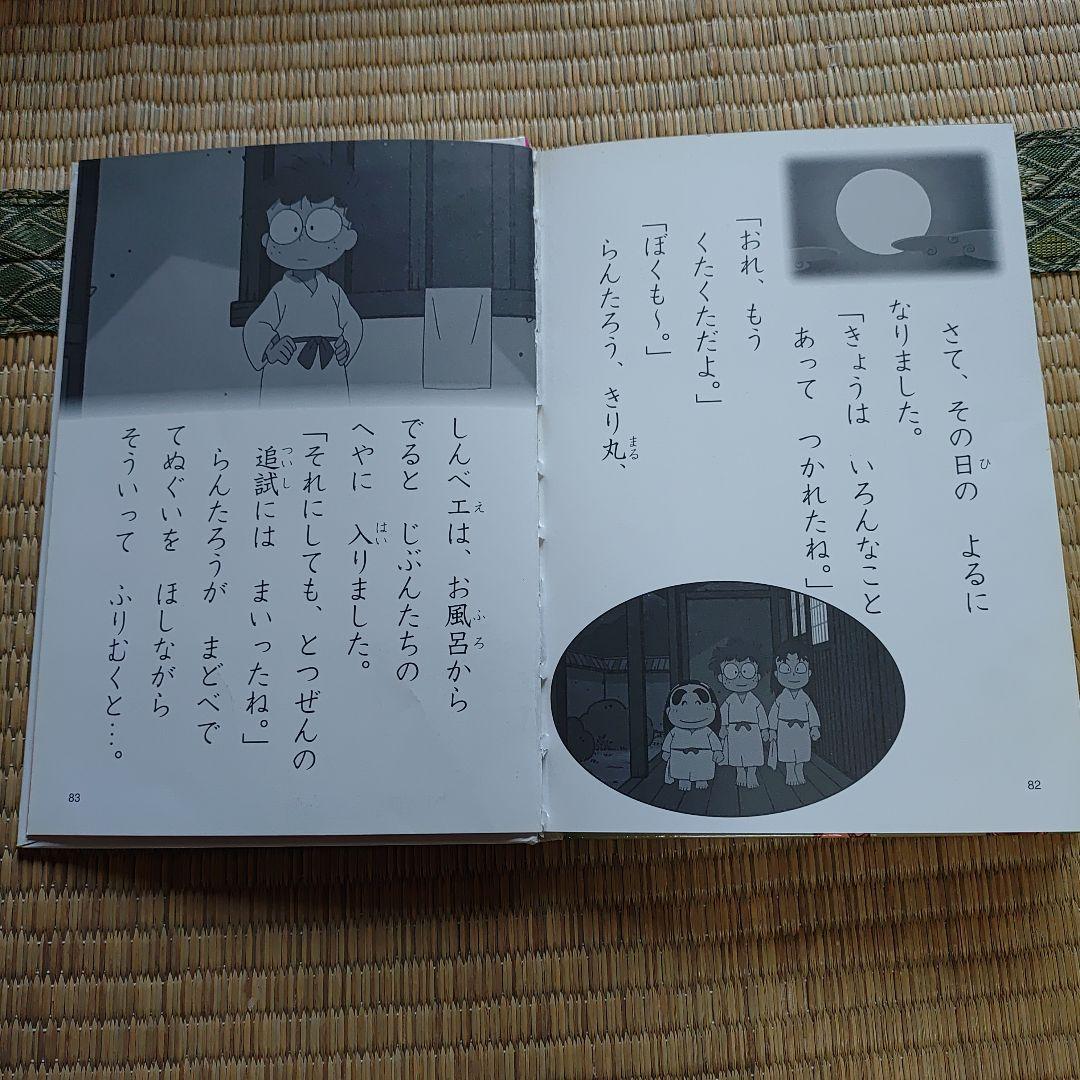 さて、その日の よるに
なりました。
「きょうは いろんなこと
あって つかれたね。」
「おれ、もう
くたくただよ。」
「ぼくも〜。」
らんたろう、きり丸、
しんべエは、お風呂から
でると じぶんたちの
へやに 入りました。
「それにしても、とつぜんの
追試には まいったね。」
らんたろうが まどべで
てぬぐいを ほしながら
そういって ふりむくと…。
ひ
まる
え
ふろ
はい
ついし
82
83